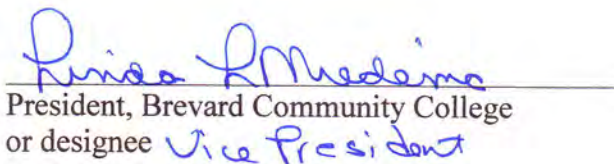 Linda L Miedema
President, Brevard Community College
or designee Vice President